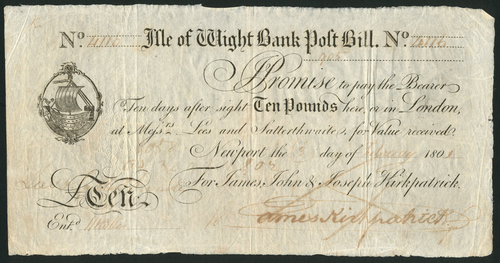 No. Isle of Wight Bank Post Bill. No.
Promise to pay the Bearer
Ten days after sight Ten Pounds here, or in London,
at Messrs. Lees and Satterthwaites, for Value received
Newport the day of 180
£Ten For James, John & Joseph Kirkpatrick,
Entd. James Kirkpatrick